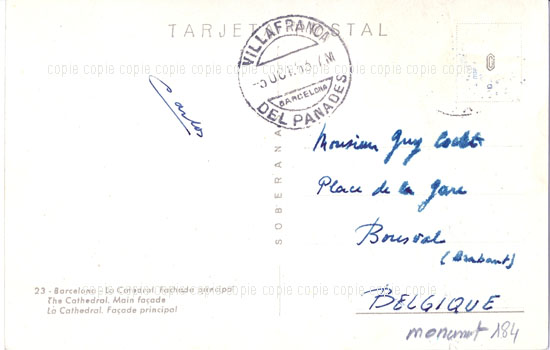 TARJETA POSTAL
VILLAFRANCA
DEL PANADES
BARCELONA
copie copie copie copie copie copie copie copie copie
Carlos
SOBERANA
Monsieur Guy
Place de la Gare
Bousval
(Brabant)
BELGIQUE
copie copie copie copie copie copie copie copie copie
23 - Barcelona - La Catedral. Fachada principal
The Cathedral. Main façade
La Cathedral. Façade principal
copie copie copie copie copie copie copie copie copie
184